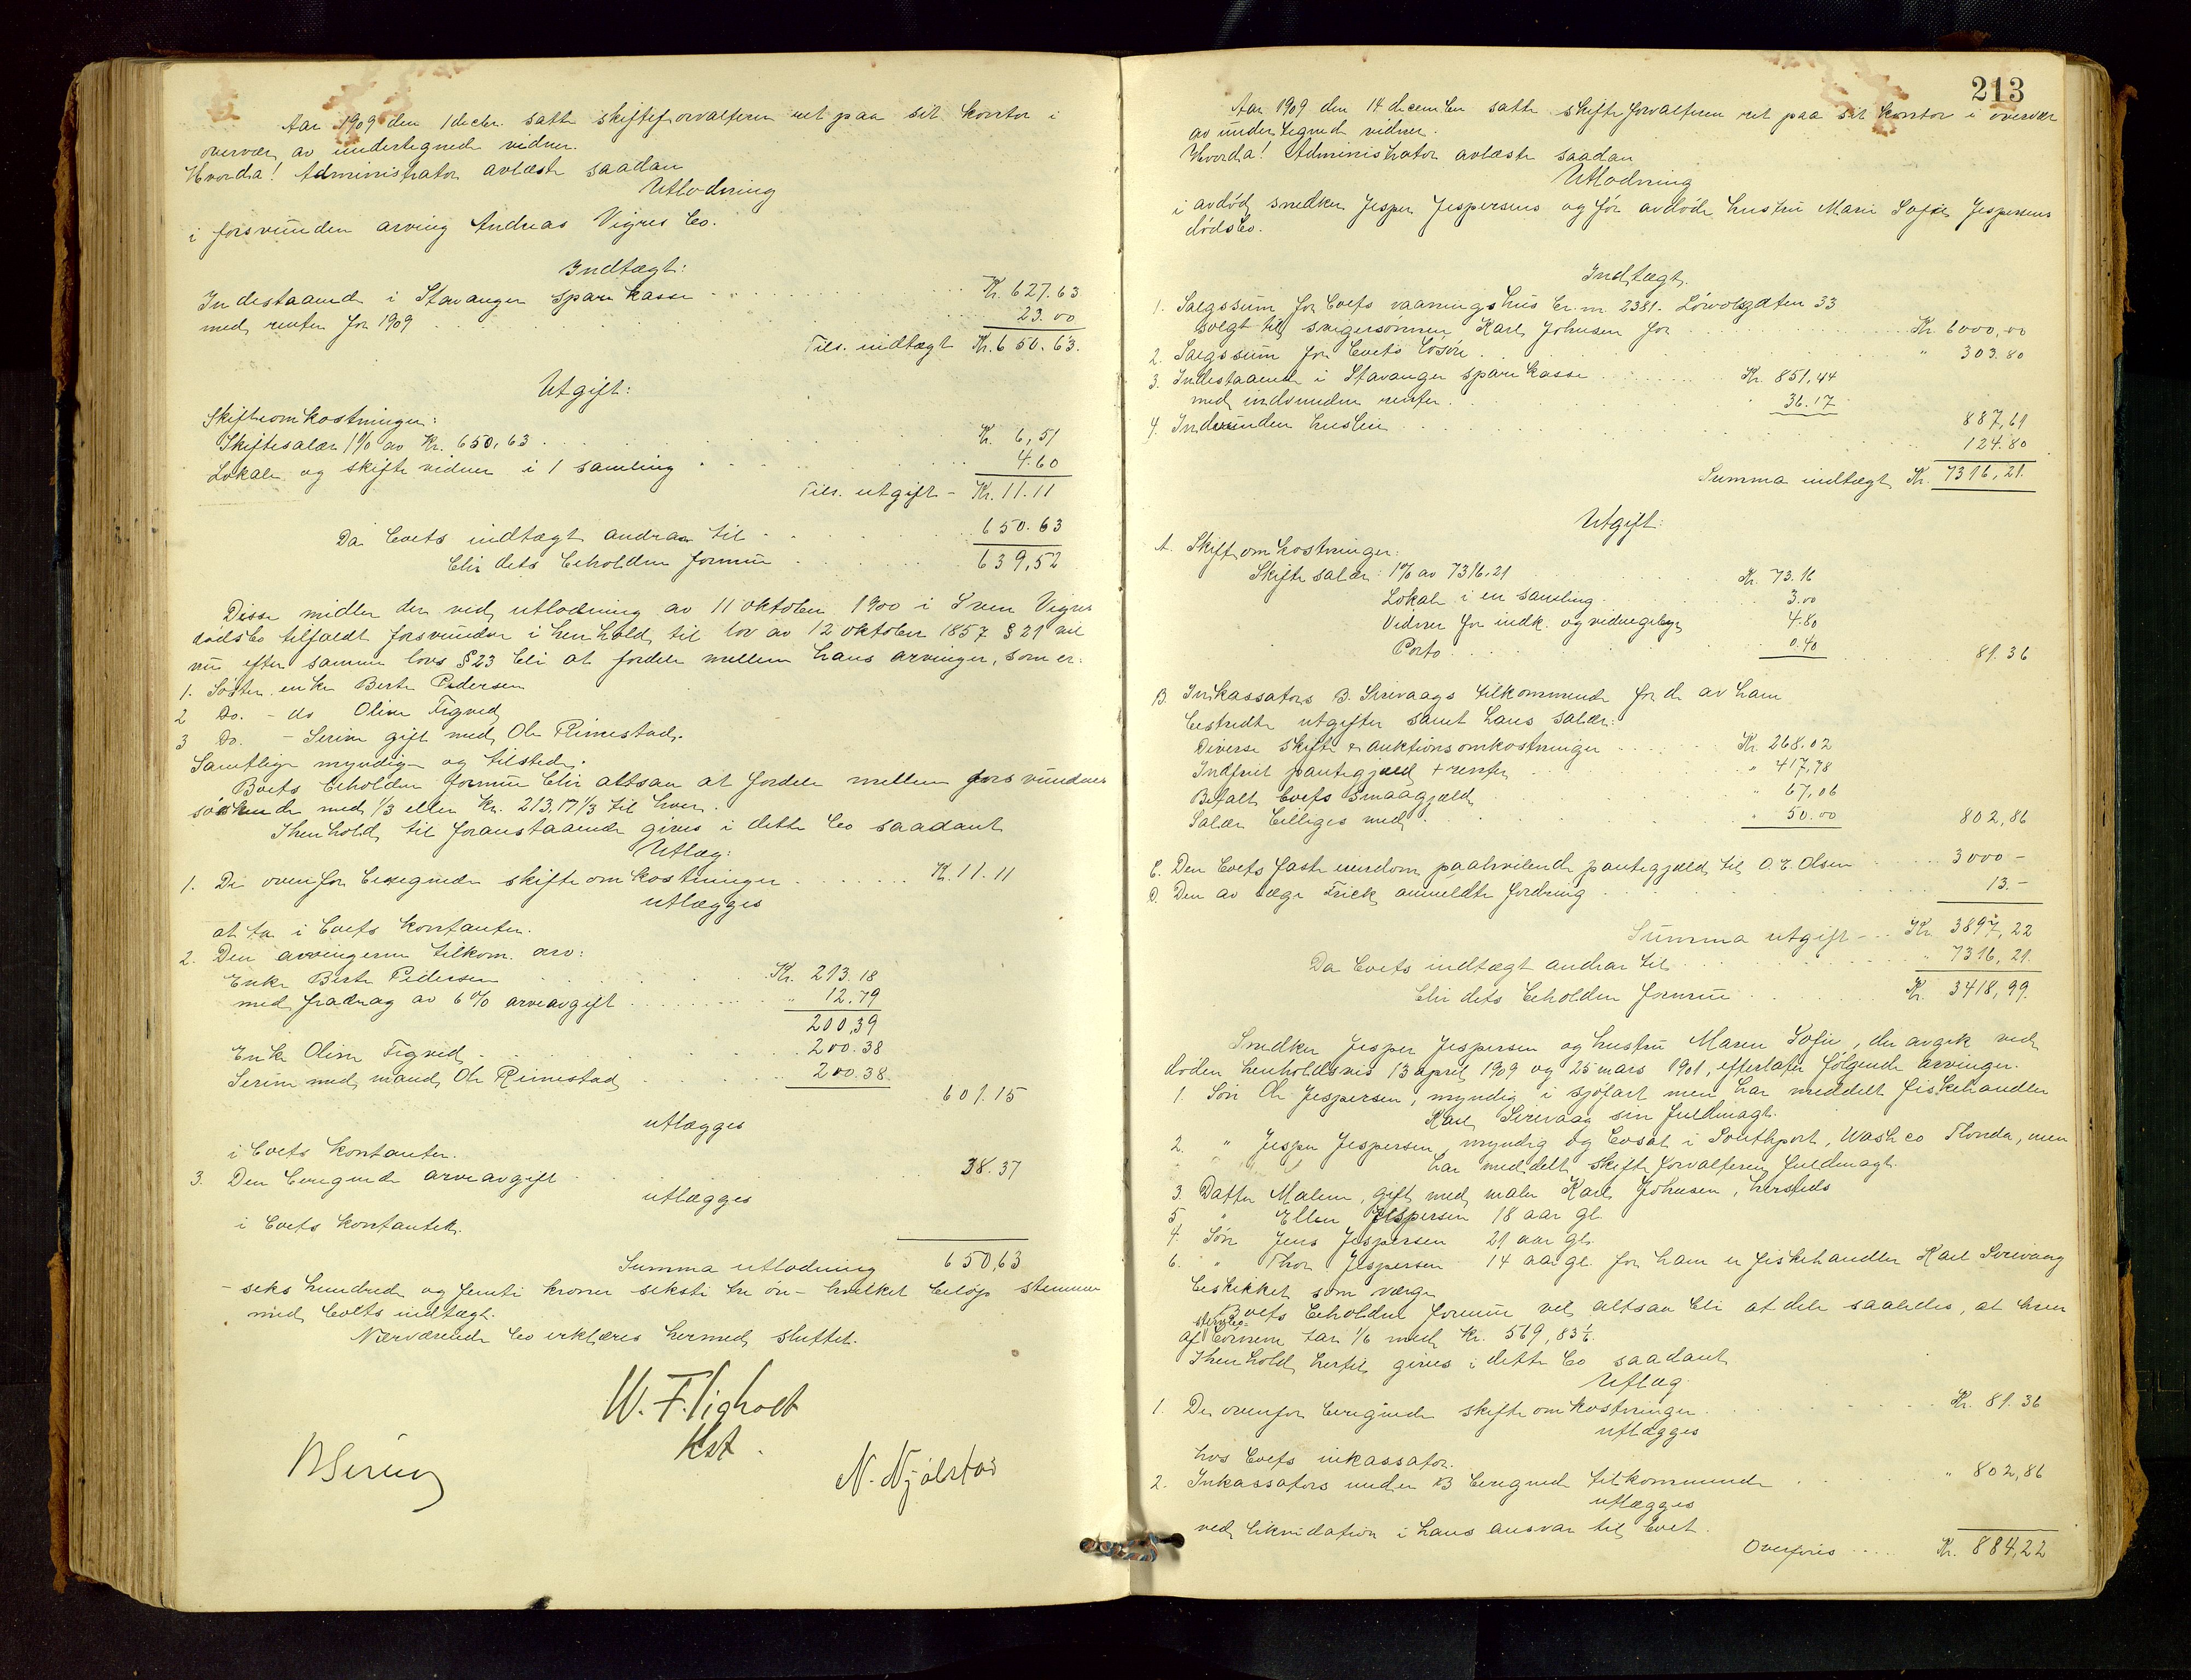 Aar 1909 den 1 decbr. satte skifteforvalteren ret paa sit kontor i
overvær av undertegnede vidner.
Hvorda! Administrator avlæste saadan
Utlodning
i forsvunden arving Andreas Vigres bo.
Indtægt:
Indestaaende i Stavanger Sparekasse Kr. 627.63
med renter for 1909 23.00
Tils. indtægt Kr. 650.63.
Utgift:
Skifteomkostninger:
Skiftesalær 1% av Kr. 650,63 Kr. 6,51
Lokale og skiftevidner i 1 samling 4.60
Tils. utgift - Kr. 11.11
Da boets indtægt andrar til 650.63
blir dets beholdne formue 639,52
Disse midler der ved utlodning av 11 oktober 1900 i Sven Vigres
dødsbo tilfaldt forsvundne i henhold til lov av 12 oktober 1857 § 21 vil
nu efter samme lovs § 23 bli at fordele mellem hans arvinger, som er:
1. Søster enke Berte Pedersen
2 Do. - do Oline Tigved
3 Do. - Serine gift med Ole Reimestad.
Samtlige myndige og tilstede.
Boets beholdne formue blir altsaa at fordele mellem forsvundnes
søskende med 1/3 eller Kr. 213.17 1/3 til hver.
I henhold til foranstaaende gives i dette bo saadant
Utlæg:
1. De ovenfor beregnede skifteomkostninger Kr. 11.11
utlægges
at ta i boets kontanter.
2. Den arvingerne tilkom. arv:
Enke Berte Pedersen Kr. 213.18
med fradrag av 6% arveavgift " 12.79
200,39
Enke Oline Tigved 200.38
Serine med mand Ole Reimestad 200.38.
601.15
utlægges
i boets kontanter.
3. Den beregnede arveavgift 38.37
utlægges
i boets kontanter.
Summa utlodning 650,63
- seks hundrede og femti kroner seksti tre øre - hvilket beløp stemmer
med boets indtægt.
Nærværende bo erklæres hermed sluttet.
W. F. Ligholt
Kst.
N. Njølstad
213
Aar 1909 den 14 december satte skifteforvalteren ret paa sit kontor i overvær
av undertegnede vidner.
Hvorda! Administrator avlæste saadan
Utlodning
i avdøde snedker Jesper Jespersens og før avdøde hustru Maren Sofie Jespersens
dødsbo.
Indtægt.
1. Salgssum for boets vaaningshus br. nr. 2381. Løvolsgaten 33
solgt til svigersønnen Karl Johnsen for Kr. 6000,00
2. Salgssum for boets løsøre " 303.80
3. Indestaaende i Stavanger sparekasse Kr. 851,44
med indvundne renter " 36.17
887,61
4. Indvunden husleie 124.80
Summa indtægt Kr. 7316,21.
Utgift:
A. Skifteomkostninger:
Skiftesalær: 1% av 7316,21 Kr. 73.16
Lokale i en samling 3.00
Vidner for indk. og vidnegebyr 4.80
Porto 0.40
81.36
B. Inkassators B. Sirevaags tilkommende for de av ham
bestridte utgifter samt hans salær:
Diverse skifte & auktionsomkostninger Kr. 268.02
Indfriet pantegjæld + renter " 417,78
Betalt boets smaagjæld " 67,06
Salær billiges med " 50.00
802,86
C. Den boets faste eiendom paahvilende pantegjæld til O. E. Olsen 3000 -
D. Den av læge Frick anmeldte fordring 13. -
Summa utgift - Kr. 3897,22
Da boets indtægt andrar til " 7316,21.
blir dets beholdne formue Kr. 3418,99.
Snedker Jesper Jespersen og hustru Maren Sofie, der avgik ved
døden henholdsvis 13 april 1909 og 25 mars 1901, efterlater følgende arvinger.
1. Søn Ole Jespersen, myndig i sjøfart men har meddelt fiskehandler
Karl Sirevaag sin fuldmagt.
2. " Jesper Jespersen, myndig og bosat i Southport, Wash co Florida, men
har meddelt skifteforvalteren fuldmagt.
3. Datter Malene, gift med maler Karl Johnsen, hersteds
5 " Ellen Jespersen 18 aar gl.
4. Søn Jens Jespersen 21 aar gl.
6. " Thor Jespersen 14 aar gl. for ham er fiskehandler Karl Sirevaag
beskikket som værge
Boets beholdne formue vil altsaa bli at dele saaledes, at hver
af børnene tar 1/6 med Kr. 569,83 1/6.
I henhold hertil gives i dette bo saadant
Utlæg
1. De ovenfor beregnede skifteomkostninger Kr. 81.36
utlægges
hos boets inkassator.
2. Inkassators under B beregnede tilkommende " 802,86
utlægges
ved likvidation i hans ansvar til boet.
Overføres Kr. 884,22